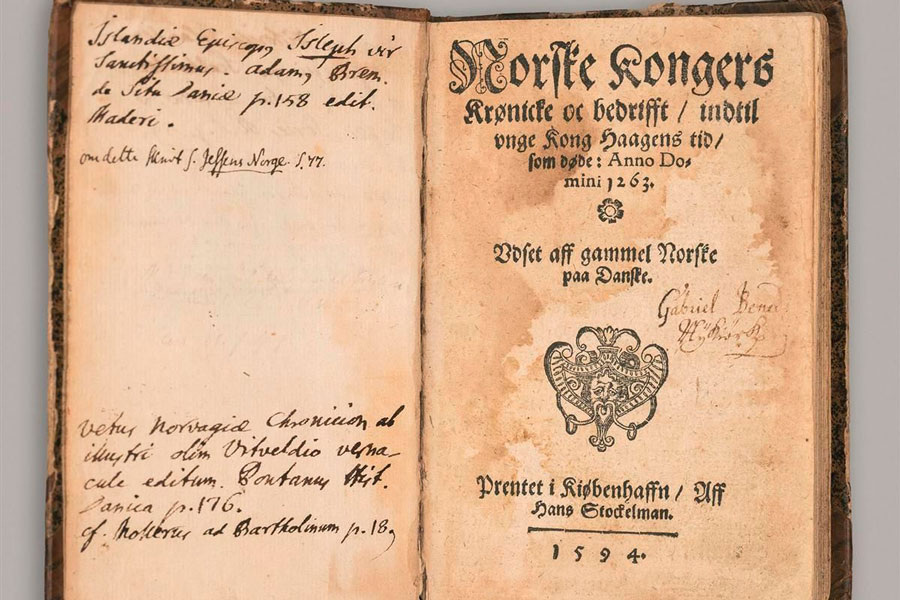 Islandiæ Episcop, Isleph vir
Sanctissimus. Adam, Brem.
de Situ Daniæ p.158 edit.
Maderi.
om dette skrift s. Jessens Norge. S. 77.
vetus Norvagiæ Chronicion ab
illustri olim Vitveldio verna-
cule editum. Pontanus Hist.
Danica p.176.
cf. Mollerus ad Bartholinum p.18,
Norske Kongers
Krønicke oc bedrifft / indtil
vnge Kong Haagens tid/
som døde: Anno Do-
mini 1263.
Vdset aff gammel Norske
paa Danske.
Gabriel
Prentet i Kiøbenhaffn / Aff
Hans Stockelman.
1594.